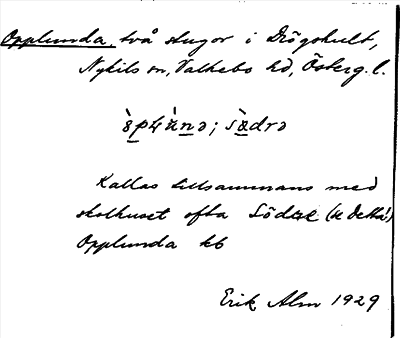 Opplunda, två stugor i Drögshult,
Nykils sn, Valkebo hd, Österg. l.
Kallas tillsammans med
skolhuset ofta Södra (se detta!)
Opplunda kb
Erik Alm 1929